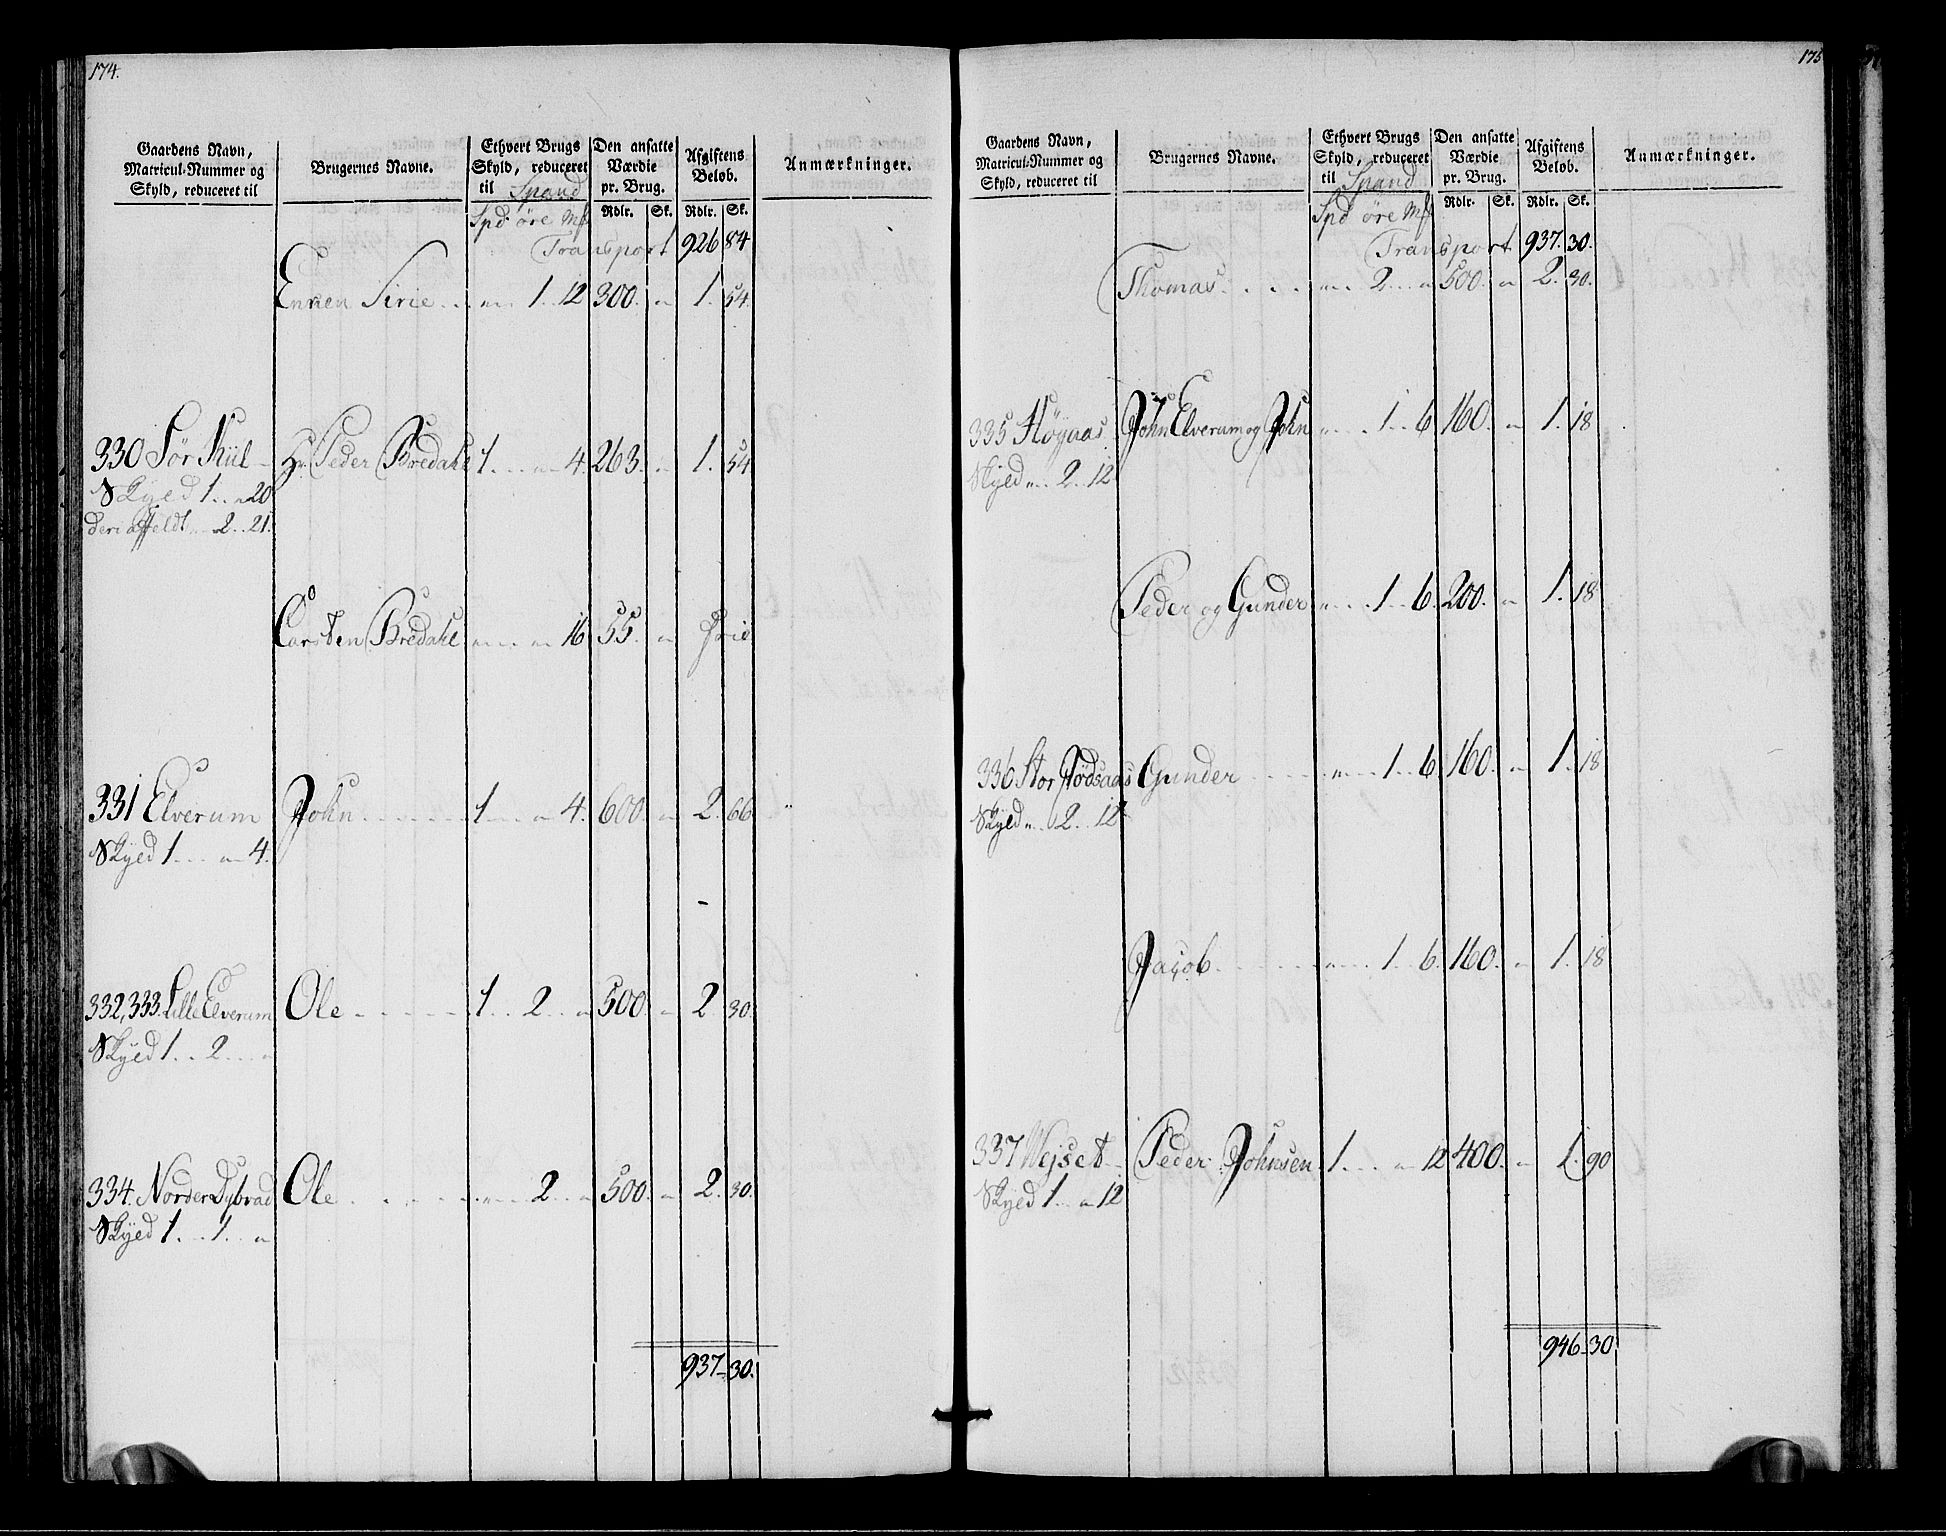 174.
Gaardens Navn,
Matricul-Nummer og
Skyld, reduceret til
Brugernes Navne.
Ethvert Brugs
Skyld, reduceret
til Spand
Den ansatte
Værdie
pr. Brug.
Afgiftens
Beløb.
Anmærkninger.
Spd øre Mk
Rdlr. Sk. Rdlr. Sk.
Transport 926 84
Enken Sirie . . „ „ 1 . 12 300. „ 1. 54.
330 Sør Kiil Hr Peder Bredahl 1 . . . „ 4. 263. „ 1. 54
Skyld 1 . . „ 20
2 . . 21.
Carsten Bredahl „ „ „ 16 55. „ frie
331 Elverum John . . . . . 1 . . „ 4. 600. „ 2. 66
Skyld 1 . . . „ 4.
332, 333. Lille Elverum Ole . . . . . 1 . . 2 . . „ 500. „ 2. 30.
Skyld 1 . . 2 . . . „
334. Norder Dybvad Ole . . . . . „ 2 . . „ 500. „ 2. 30.
Skyld 1 . . . 1 . . „
937. 30.
175
Gaardens Navn,
Matricul-Nummer og
Skyld, reduceret til
Brugernes Navne.
Ethvert Brugs
Skyld, reduceret
til Spand
Den ansatte
Værdie
pr. Brug.
Afgiftens
Beløb.
Anmærkninger.
Spd øre Mk
Rdlr. Sk. Rdlr. Sk.
Transport 937. 30.
Thomas . . . . „ . 2 . . „ 500. „ 2. 30.
335 Høgaas John Elverum og John „ . . 1 . . 6 160. „ 1. 18
Skyld „ . . 2 . . 12
Peder og Gunder „ . . 1 . . 6. 200. „ 1. 18
336. Stor Gunder . . . . „ . . 1 . . 6. 160. „ 1. 18
Skyld „ . . 2 . . 12
Jacob . . . . . „ . . 1 . . 6. 160. „ 1. 18
337 Wejset Peder Johnsen 1 . . . „ 12 400. „ 1. 90
Skyld 1 . . „ 12
946. 30